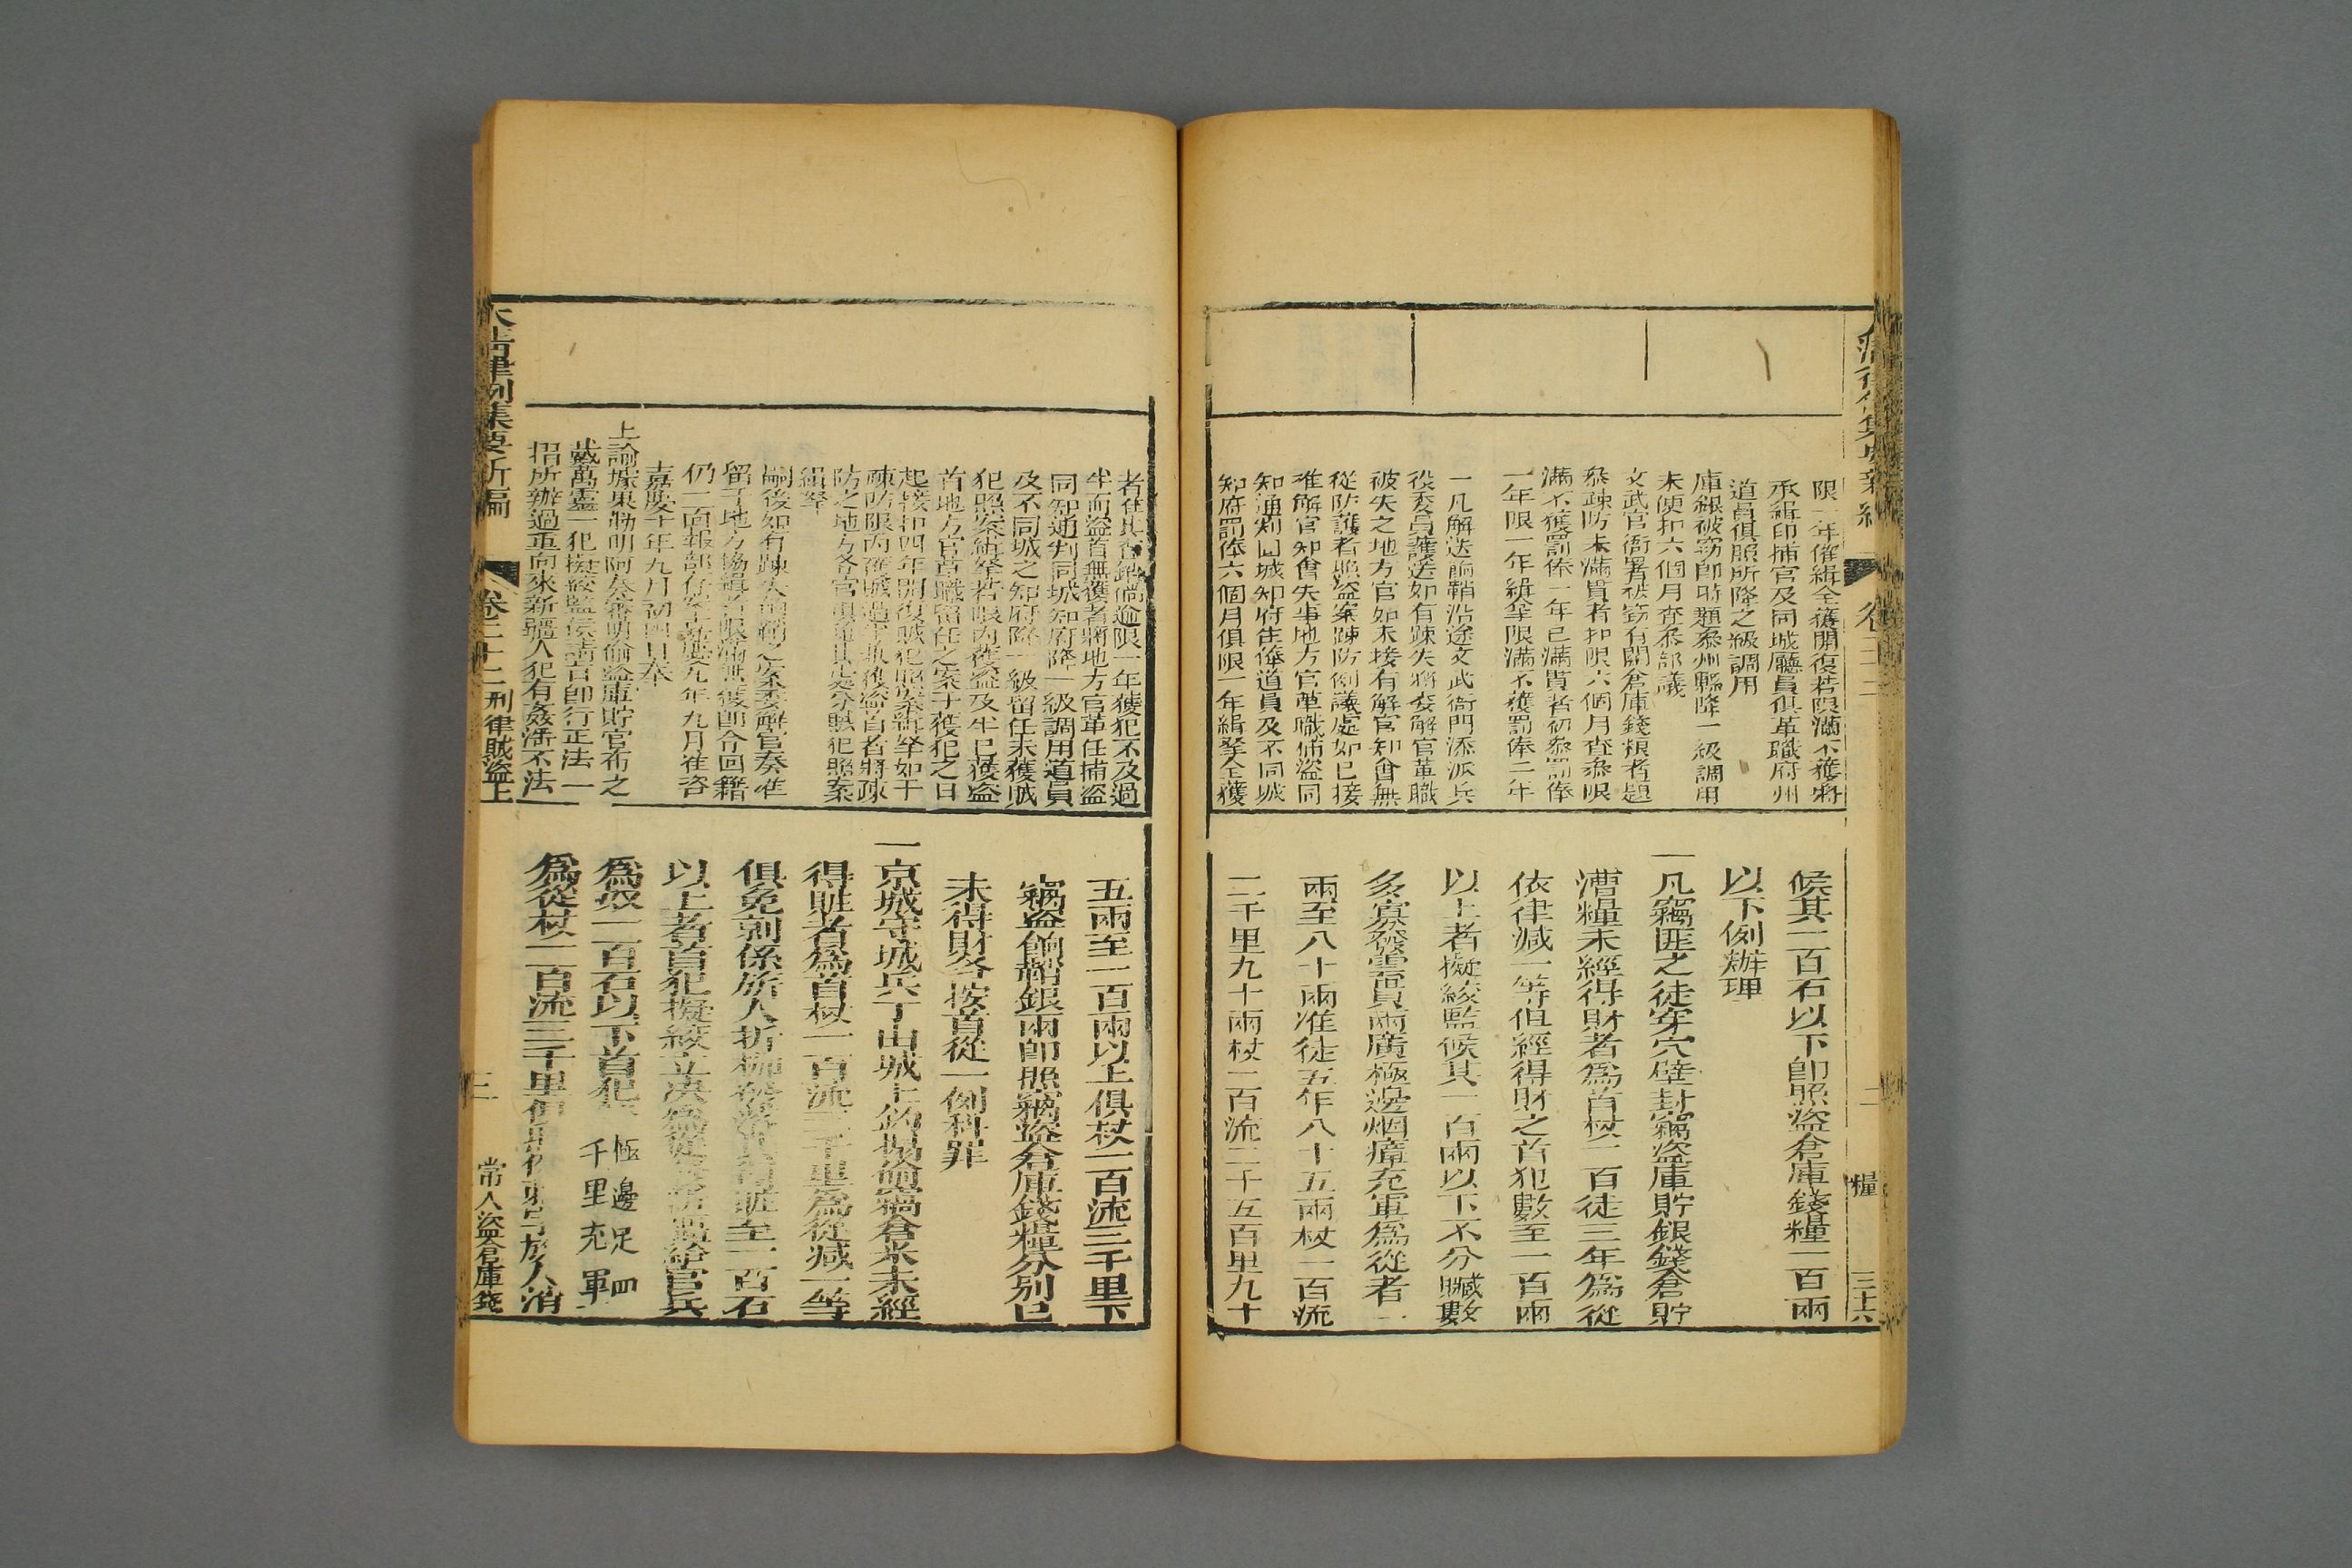 限一年催緝全獲開復若限滿不獲將
承緝印捕官及同城廳員俱革職府州
道員俱照所降之級調用
庫銀被竊即時題參州縣降一級調用
未便扣六個月查參部議
文武官衙署被竊有關倉庫錢粮者題
參疎防未滿貫者扣限六個月查參限
滿不獲罰俸一年已滿貫者初參罰俸
一年限一年緝拏限滿不獲罰俸二年
一凡解送餉鞘沿途文武衙門添派兵
役委員護送如有疎失將委解官革職
被失之地方官如未接有解官知會無
從防護者照盜案疎防例議處如已接
准解官知會失事地方官革職捕盜同
知通判同城知府住俸道員及不同城
知府罰俸六個月俱限一年緝拏全獲
候其一百石以下即照盜倉庫錢糧一百兩
以下例辦理
一凡竊匪之徒穿穴壁封竊盜庫貯銀錢倉貯
漕糧未經得財者為首杖一百徒三年為從
依律減一等但經得財之首犯數至一百兩
以上者擬絞監候其一百兩以下不分贓數
多寡發雲貴兩廣極邊烟瘴充軍為從者一
兩至八十兩准徒五年八十五兩杖一百流
二千里九十兩杖一百流二千五百里九十
糧
三十六
者住其
半而盜首無獲者將地方官革任捕盜
同知通判同城知府降一級調用道員
及不同城之知府降一級留任未獲賊
犯照案緝拏若限內獲盜及半已獲盜
首地方官革職留任之案于獲犯之日
起接扣四年開復賊犯照案緝拏如于
疎防限內
防之地方各官
緝拏
嗣後如有疎失餉鞘之案委解官奏准
留于地方協緝者限滿無獲即令回籍
仍一面報部存案嘉慶九年九月准咨
嘉慶十年九月初四日奉
上諭據果勒明阿奏審明偷盜庫貯官布之
戴萬靈一犯擬絞監候請旨即行正法一
摺所辦過重向來新疆人犯有姦淫不法
五兩至一百兩以上俱杖一百流三千里下
竊盜餉鞘銀兩即照竊盜倉庫錢糧分別已
未得財各按首從一例科罪
一京城守城兵丁由城上釣揚偷竊倉米未經
得賍者為首杖一百流三千里為從減一等
俱免刺係旂人折枷
以上者首犯擬絞立決為從
為奴一百石以下首犯 極邊足四
千里充軍
為從杖一百流三千里
大清律例集要新編 卷二十二 刑律賊盜上 常人盜倉庫錢